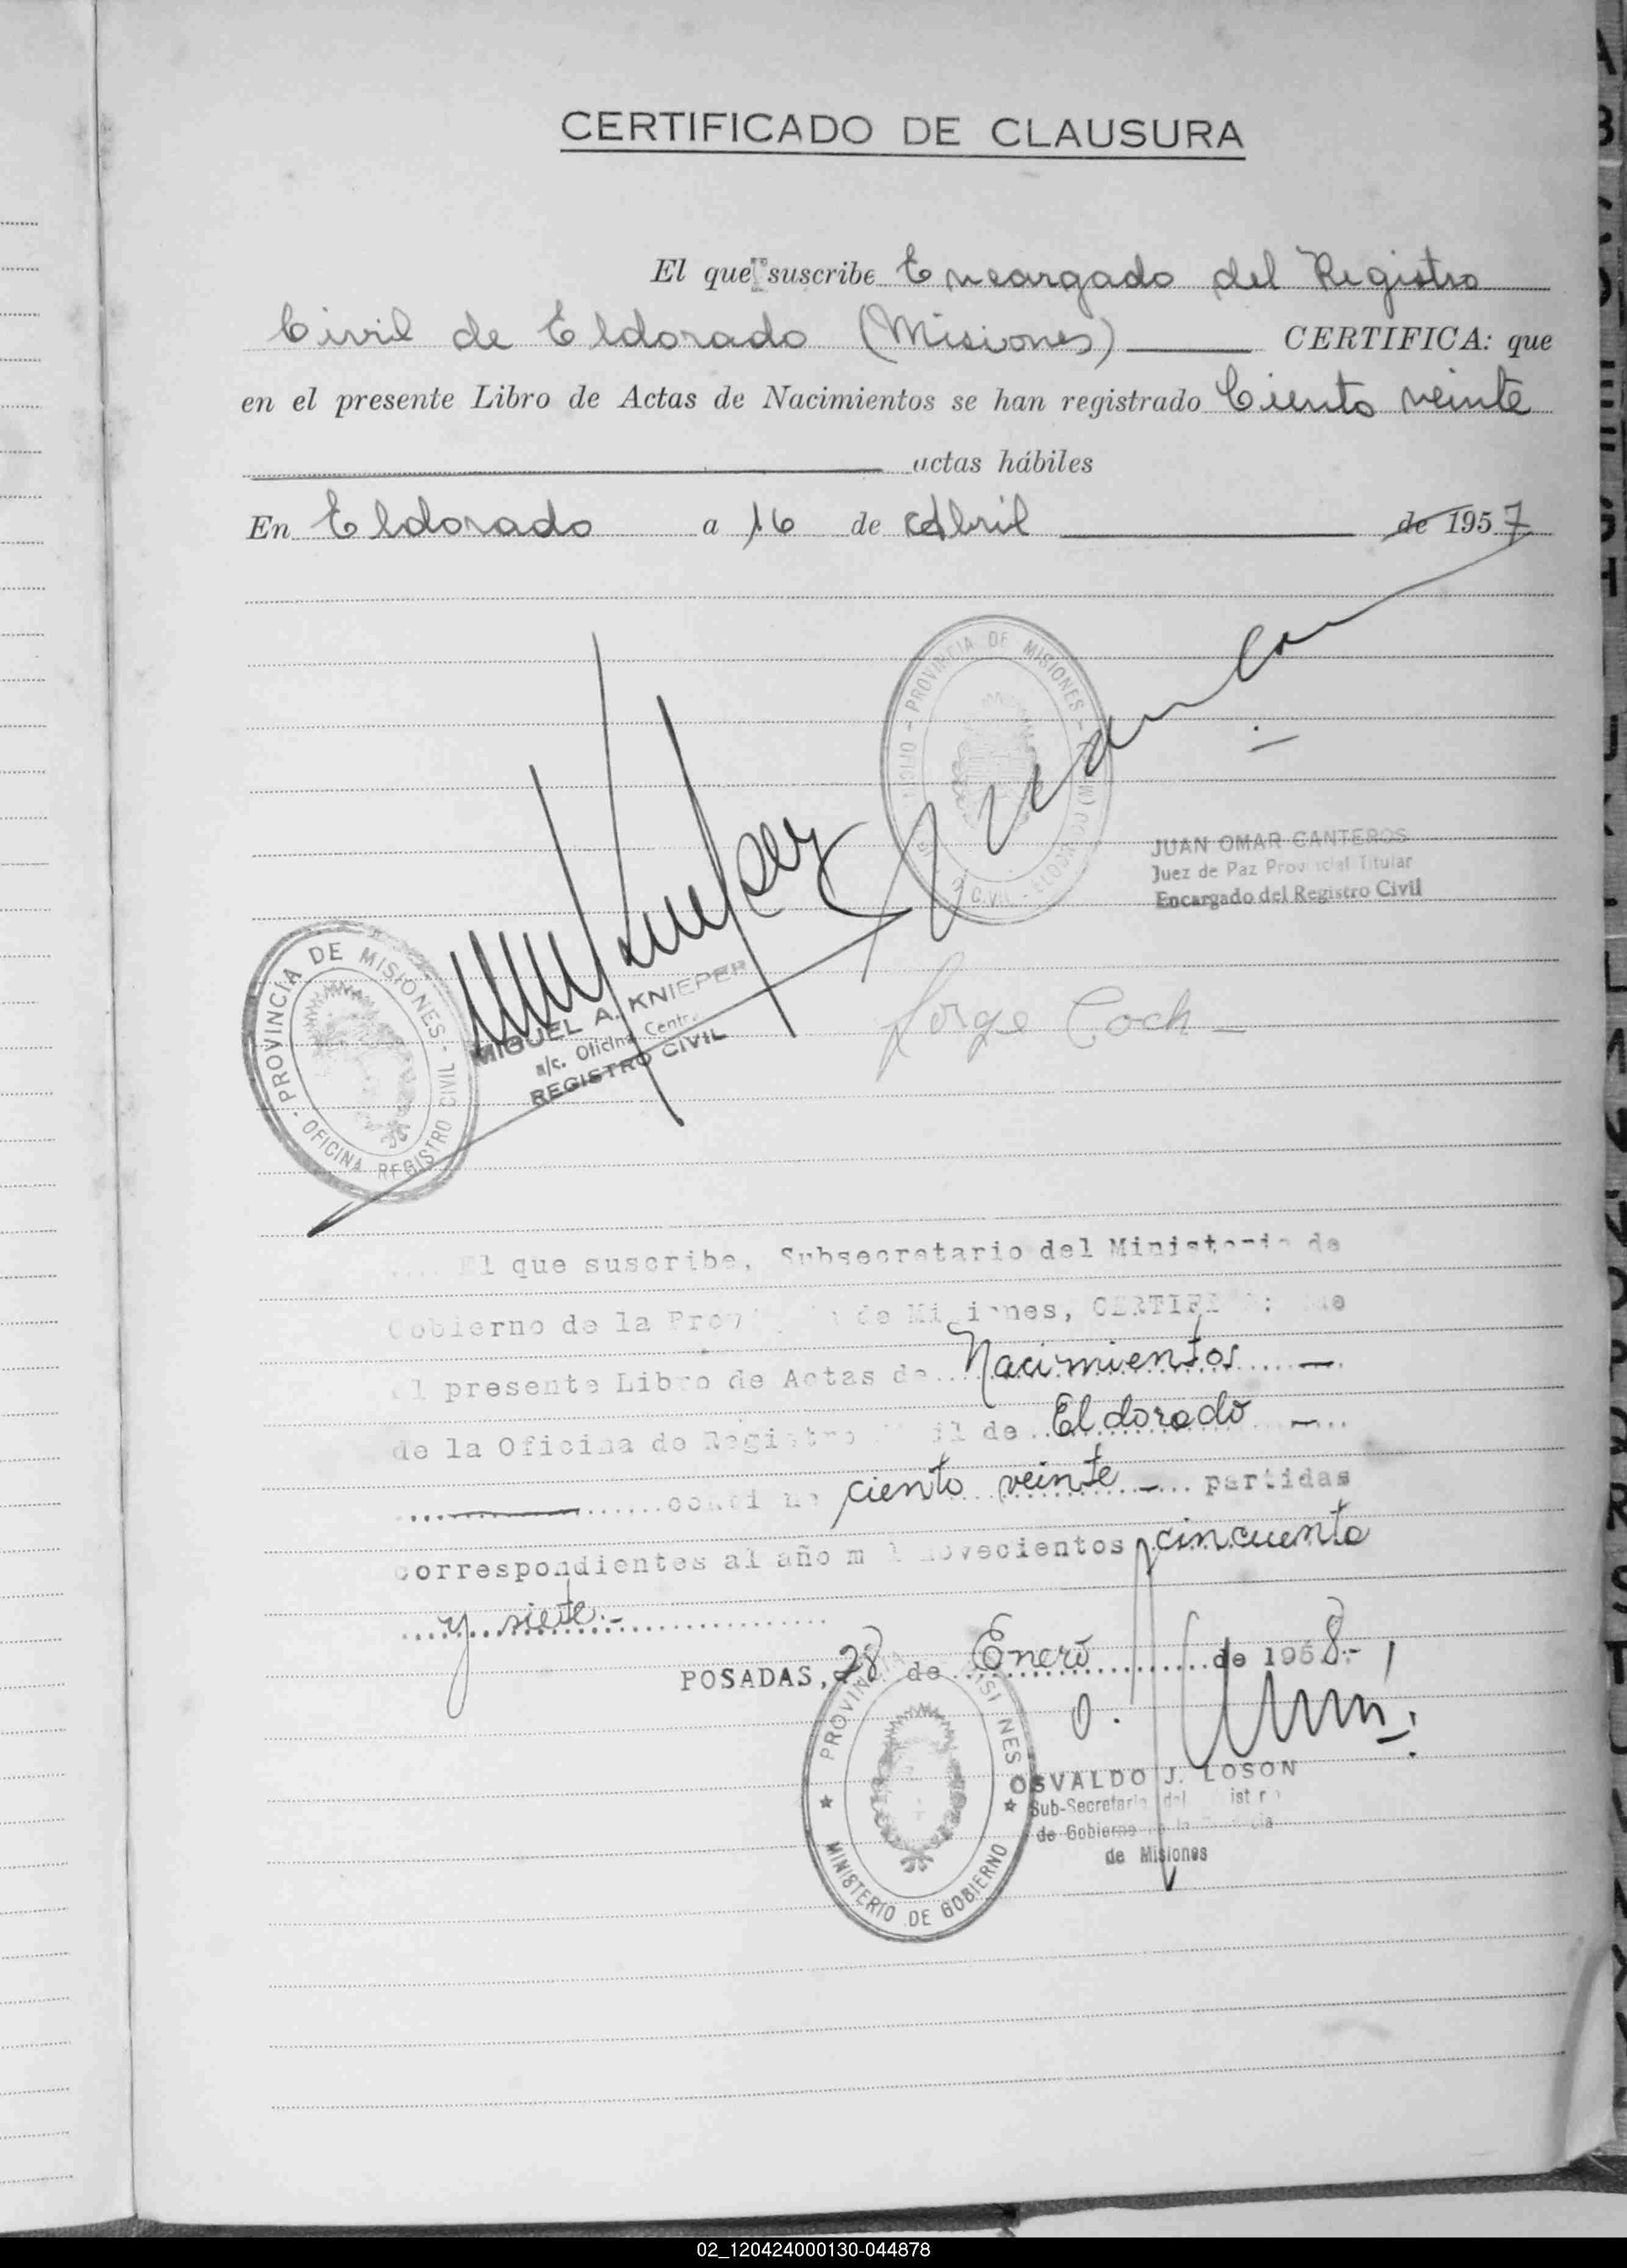 CERTIFICADO DE CLAUSURA
El que suscribe Encargado del Registro
Civil de Eldorado (Misiones) CERTIFICA: que
en el presente Libro de Actas de Nacimientos se han registrado Ciento veinte
actas hábiles
En Eldorado a 16 de Abril de 1957
PROVINCIA DE MISIONES
JUAN OMAR CANTEROS
Juez de Paz Provincial Titular
Encargado del Registro Civil
PROVINCIA DE MISIONES - OFICINA REGISTRO CIVIL
MIGUEL A. KNIEPER
a/c. Oficina Centr
REGISTRO CIVIL
Jorge Coch
El que suscribe, Subsecretario del Ministerio de
Gobierno de la Provincia de Misiones, CERTIFICA: que
el presente Libro de Actas de Nacimientos
de la Oficina de Registro Civil de Eldorado
contiene ciento veinte partidas
correspondientes al año mil novecientos cincuenta
y siete.-
POSADAS, 28 de Enero de 1958.-
PROVINCIA MISIONES
MINISTERIO DE GOBIERNO
OSVALDO J. LOSON
Sub-Secretario del Ministro
de Gobierno de la Provincia
de Misiones
02_120424000130-044878